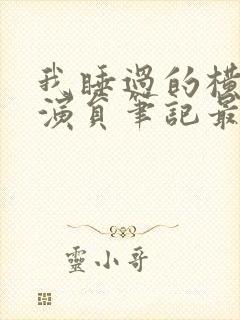 我睡過的橫
演員筆記最
靈小哥